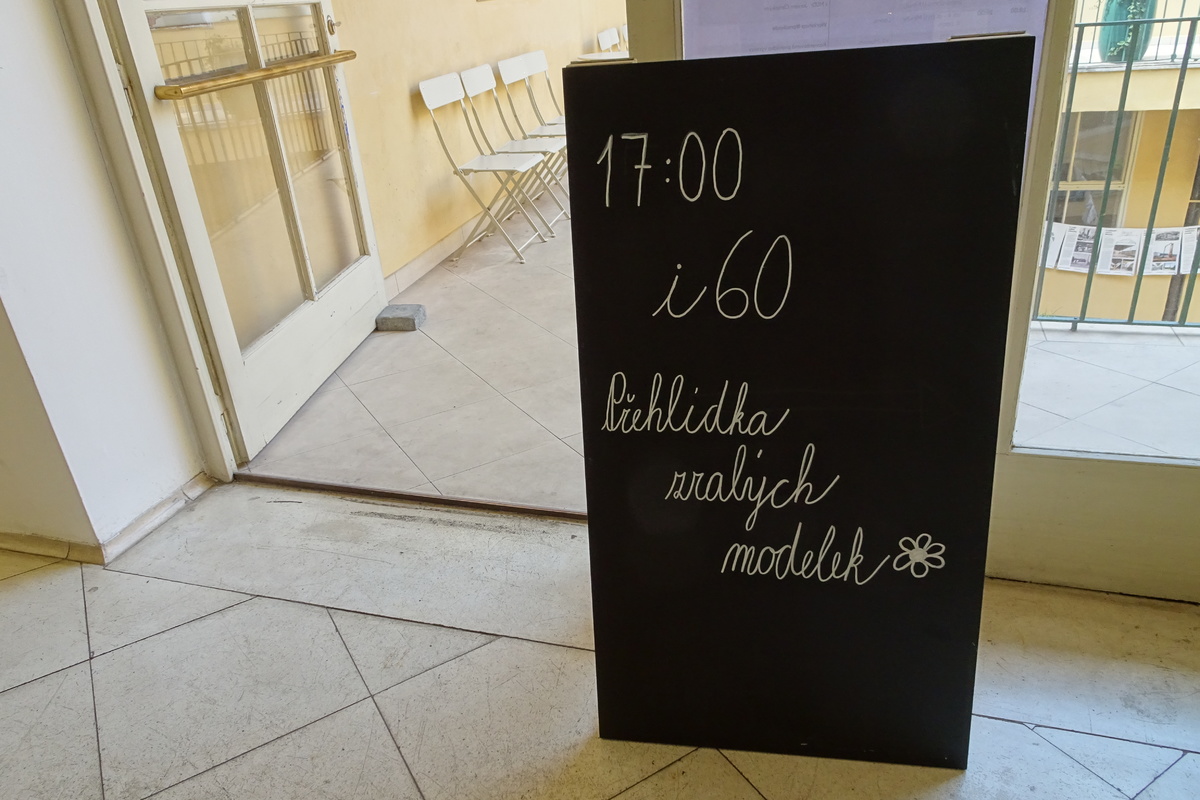 17:00
i60
Přehlídka
zralých
modelek